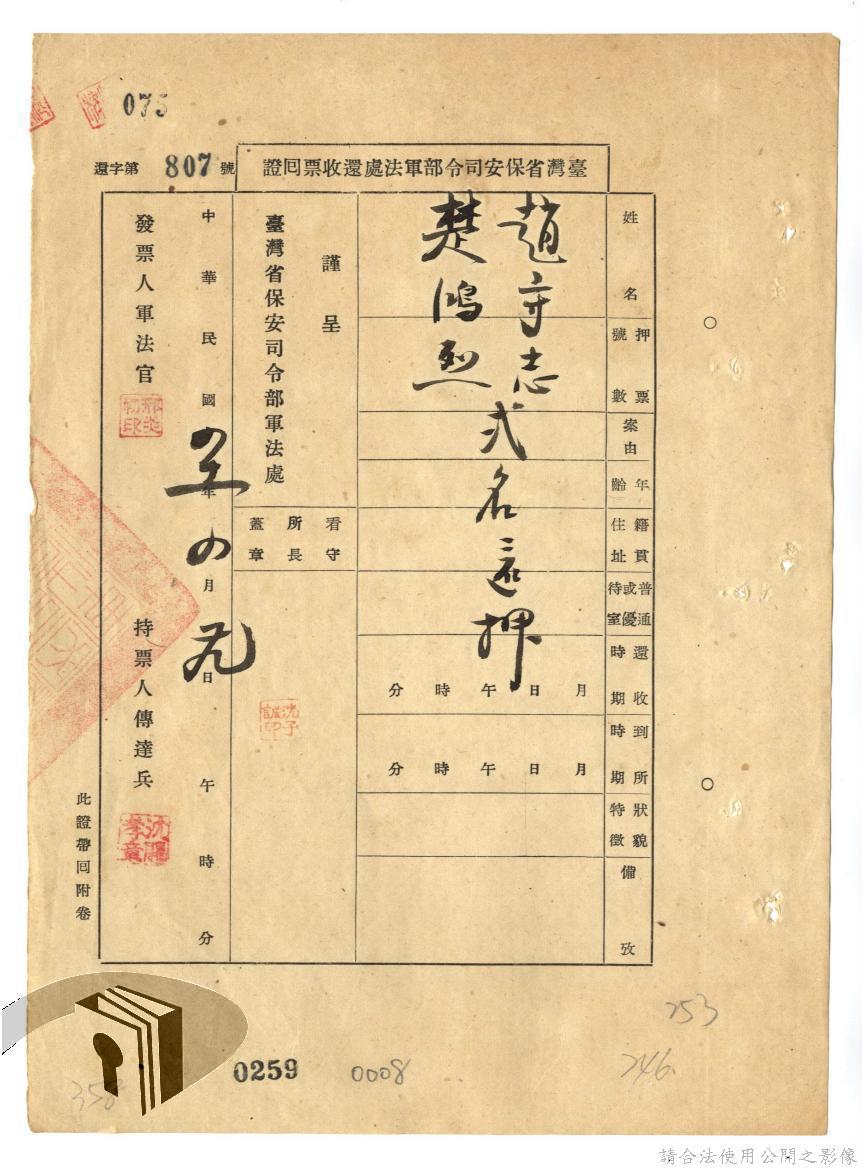 075
臺灣省保安司令部軍法處還收票回證
還字第 807 號
姓名
押票號數
案由
年齡
籍貫住址
普通或優待室
還收時期
月 日 午 時 分
到所時期
月 日 午 時 分
狀貌特徵
備攷
趙守志
楚鴻烈
弍名還押
謹呈
臺灣省保安司令部軍法處
看守所長蓋章
沈子誠印
中華民國 年 四月 日 午 時 分
發票人軍法官
持票人傳達兵
此證帶回附卷
253
246
0259
0008
358
請合法使用公開之影像